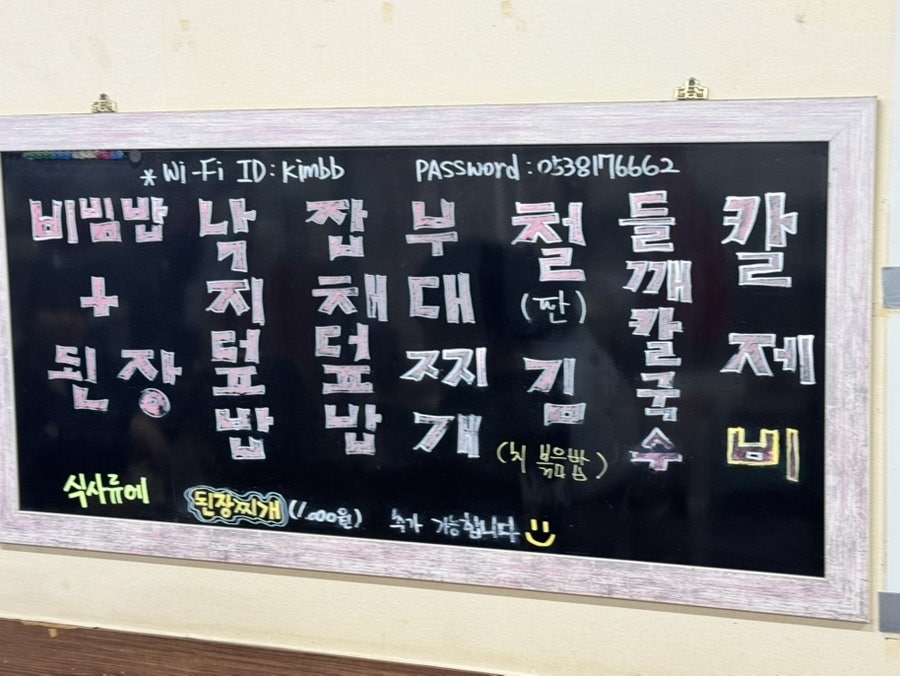 * Wi-Fi ID: kimbb PASSword: 0538176662
비빔밥 + 된장
낙지덮밥
잡채덮밥
부대찌개
철(판)김(치볶음밥)
들깨칼국수
칼제비
식사류에 된장찌개 (1,000원) 추가 가능합니다